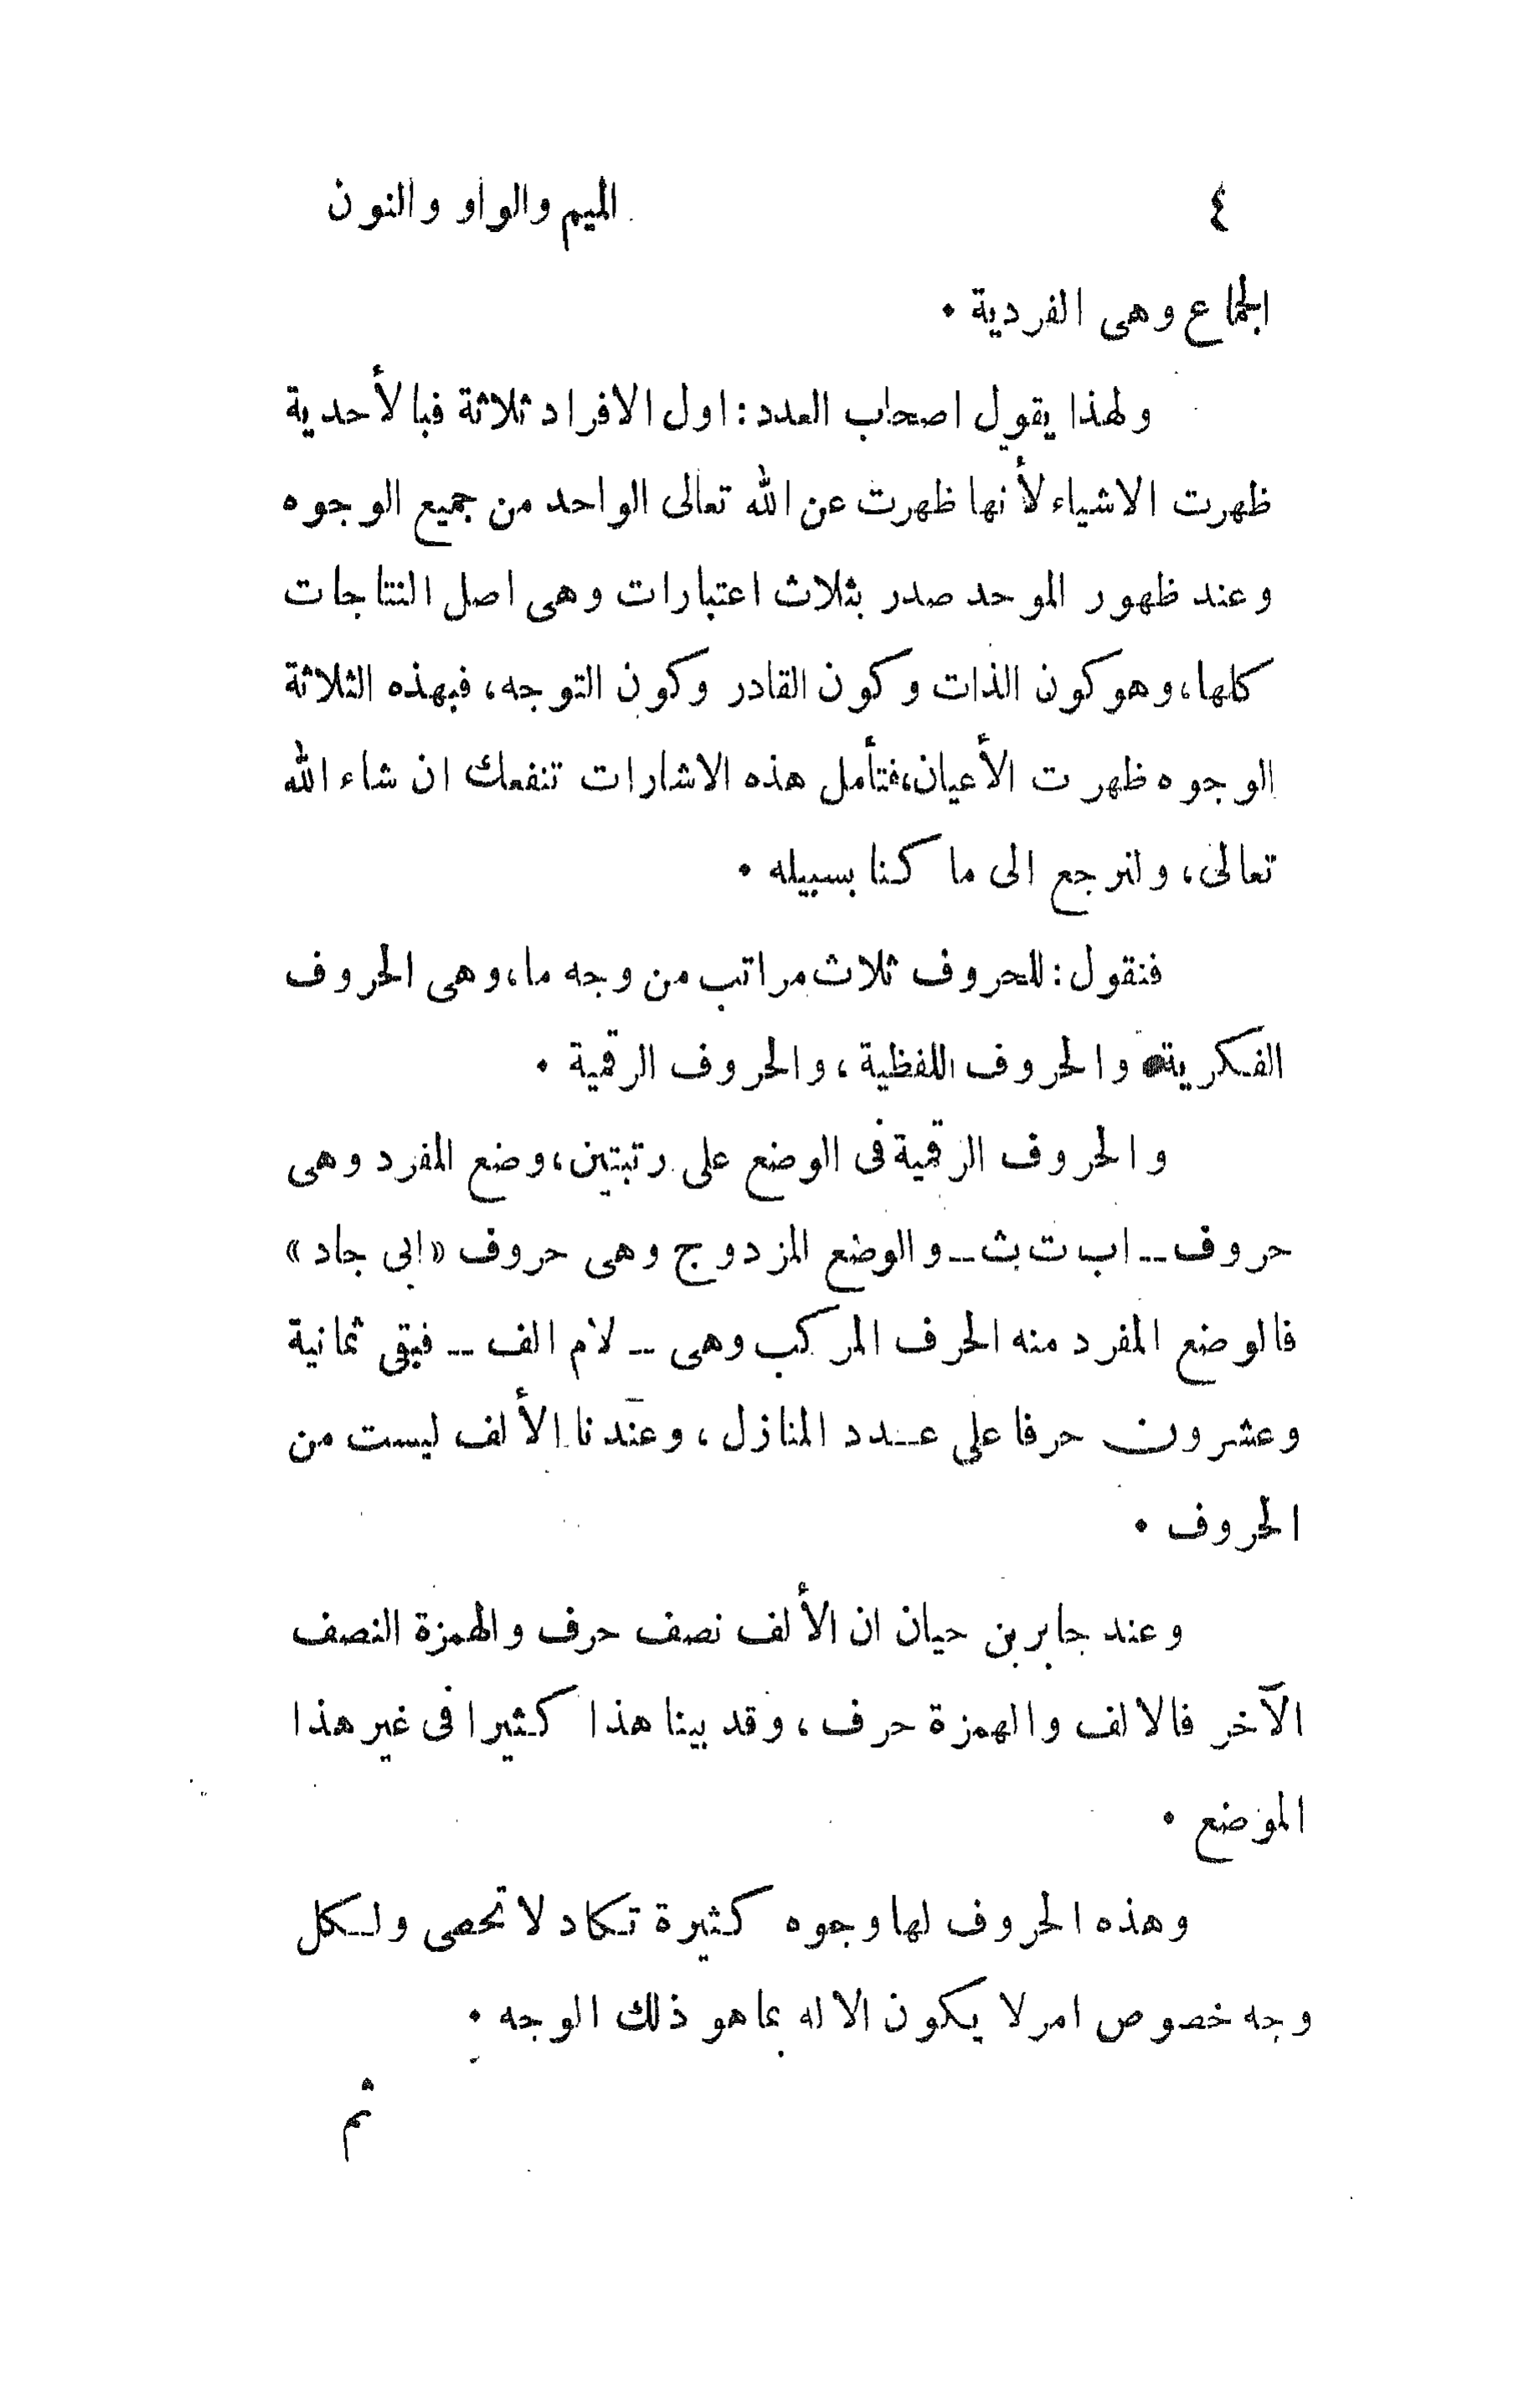 ٤ الميم والواو والنون
الجماع وهى الفردية •
ولهذا يقول اصحاب العدد : اول الافراد ثلاثة فبالأحدية
ظهرت الاشياء لأنها ظهرت عن الله تعالى الواحد من جميع الوجوه
وعند ظهور الموحد صدر بثلاث اعتبارات وهى اصل النتاجات
كلها، وهو كون الذات وكون القادر وكون التوجه، فبهذه الثلاثة
الوجوه ظهرت الأعيان، فتأمل هذه الاشارات تنفعك ان شاء الله
تعالى، ولنرجع الى ما كنا بسبيله •
فنقول : للحروف ثلاث مراتب من وجه ما، وهى الحروف
الفكرية والحروف اللفظية، والحروف الرقمية •
والحروف الرقمية فى الوضع على رتبتين، وضع المفرد وهى
حروف -- اب ت ث -- والوضع المزدوج وهى حروف «ابى جاد»
فالوضع المفرد منه الحرف المركب وهى -- لام الف -- فبقى ثمانية
وعشرون حرفا على عدد المنازل، وعندنا الألف ليست من
الحروف •
وعند جابر بن حيان ان الألف نصف حرف والهمزة النصف
الآخر فالالف والهمزة حرف، وقد بينا هذا كثيرا فى غير هذا
الموضع •
وهذه الحروف لها وجوه كثيرة تكاد لا تحصى ولكل
وجه خصوص امر لا يكون الا له بما هو ذلك الوجه •
ثم